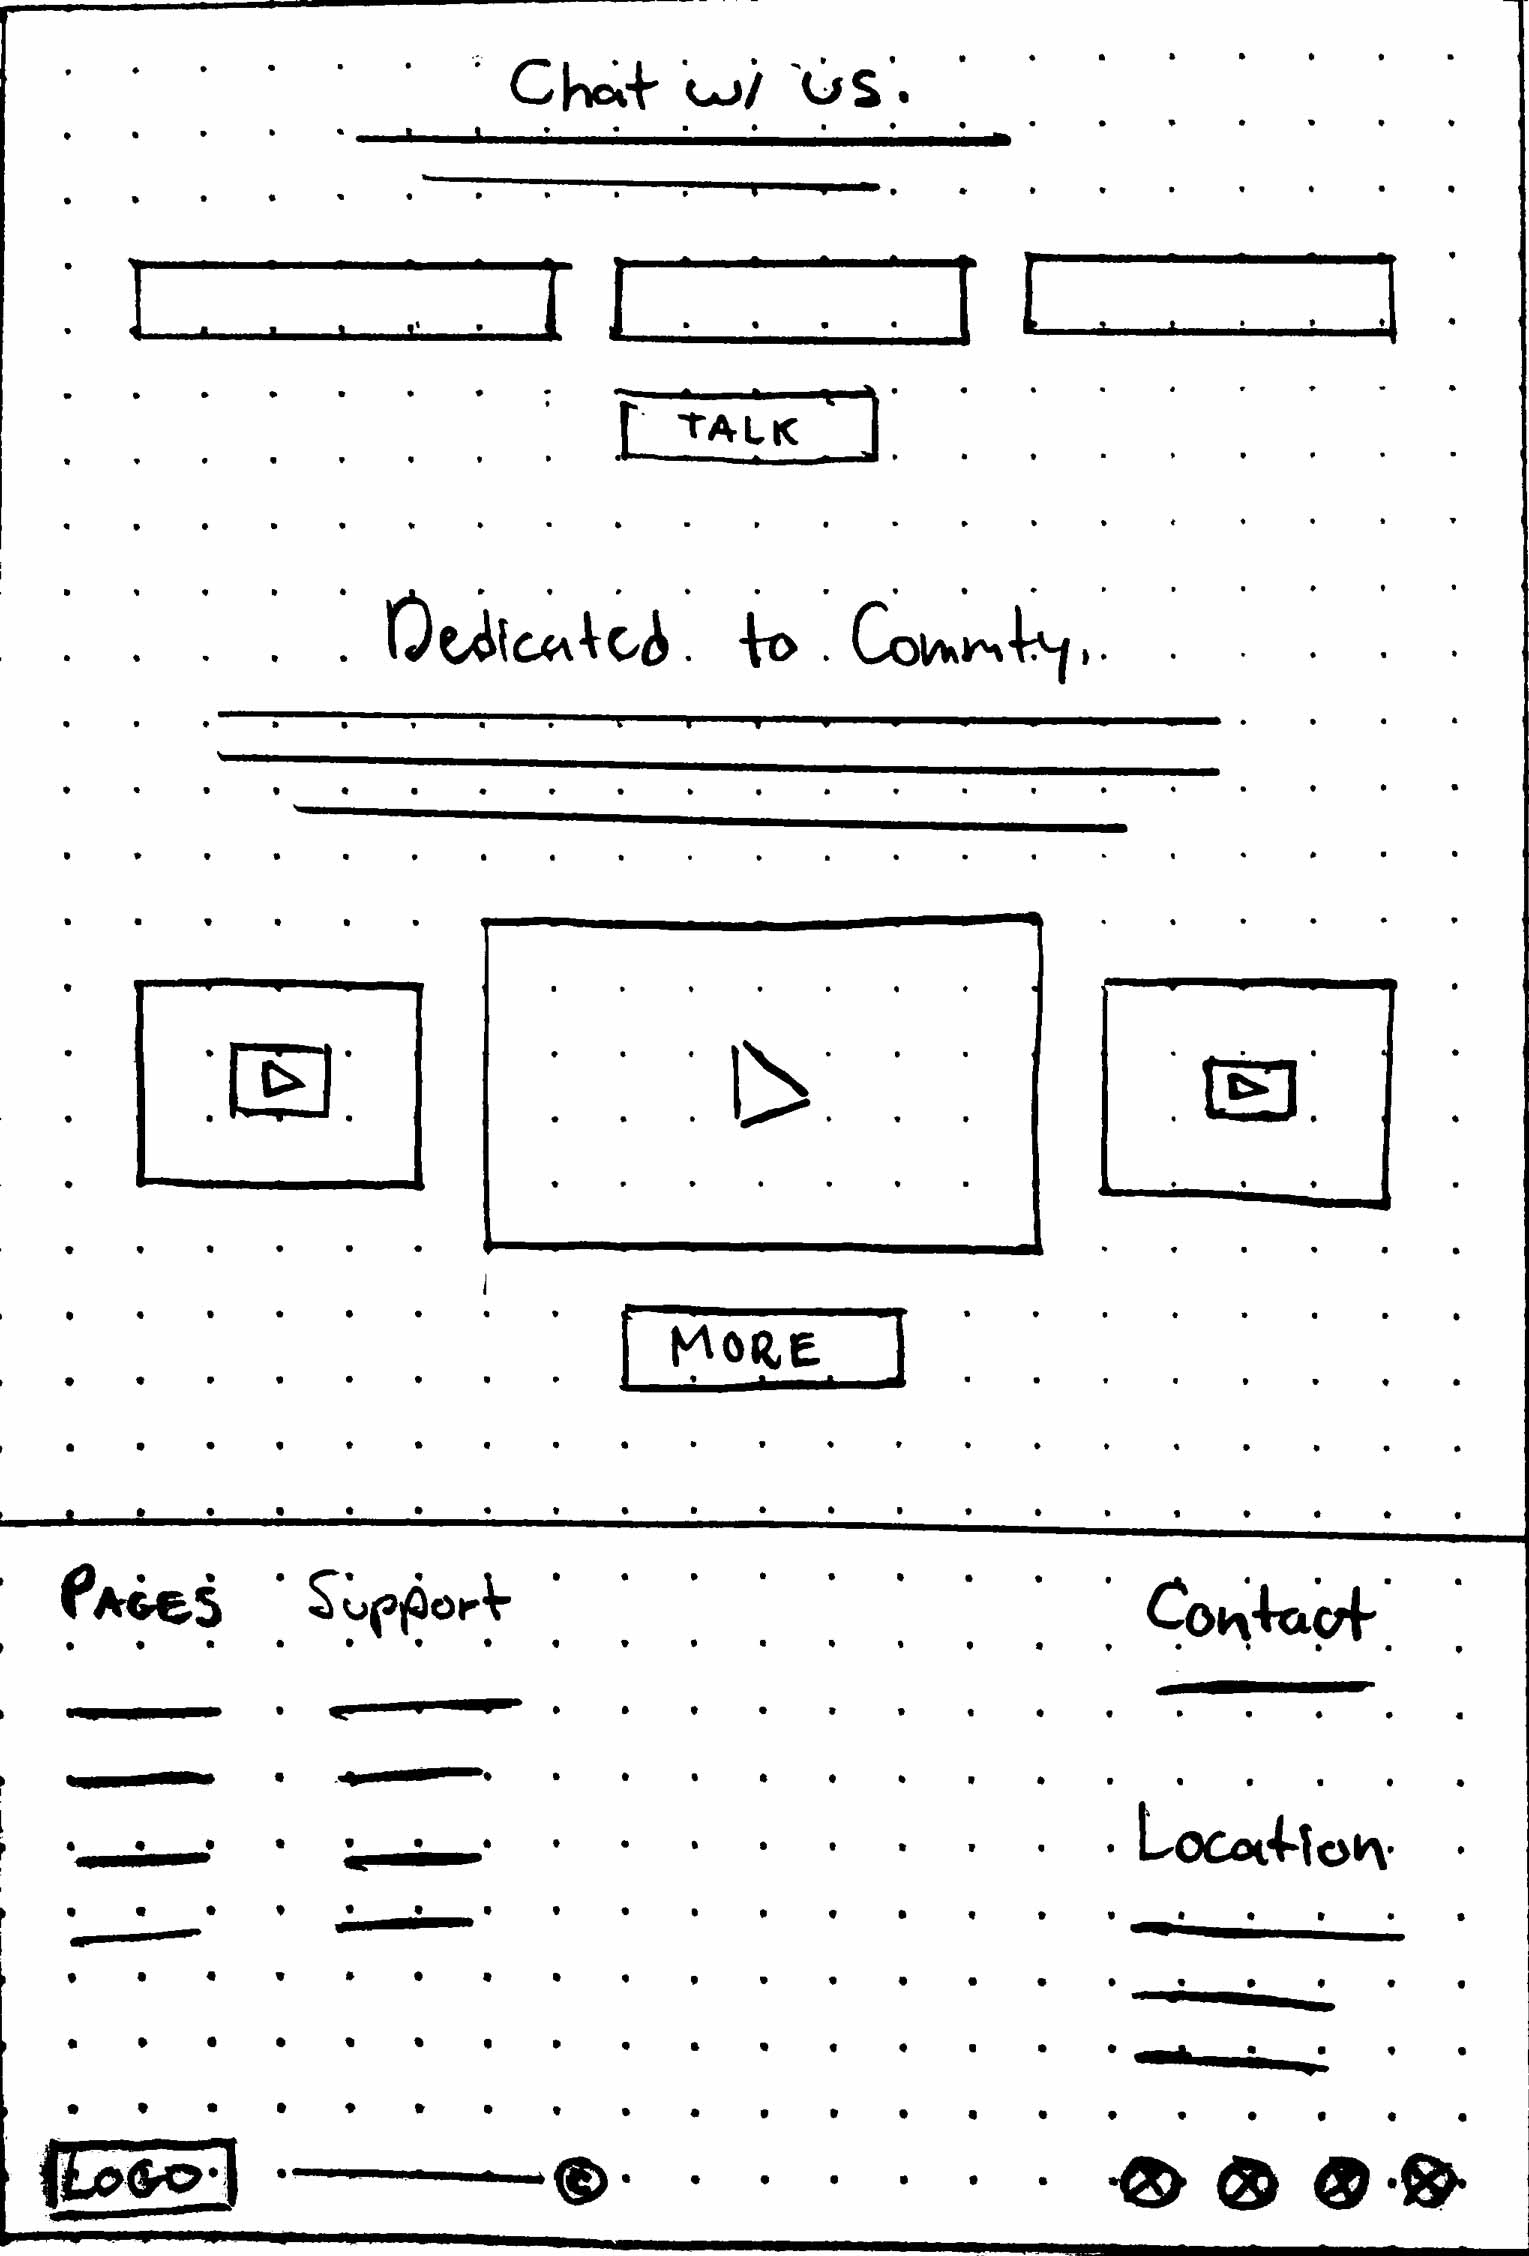 Chat w/ us.
TALK
Dedicated to Commty.
MORE
PAGES Support Contact
Location
LOGO ©